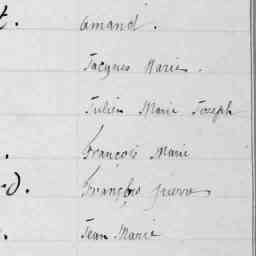 t. Amand.
Jacques Marie.
Julien Marie Joseph
. François Marie
d. François Pierre
. Jean Marie